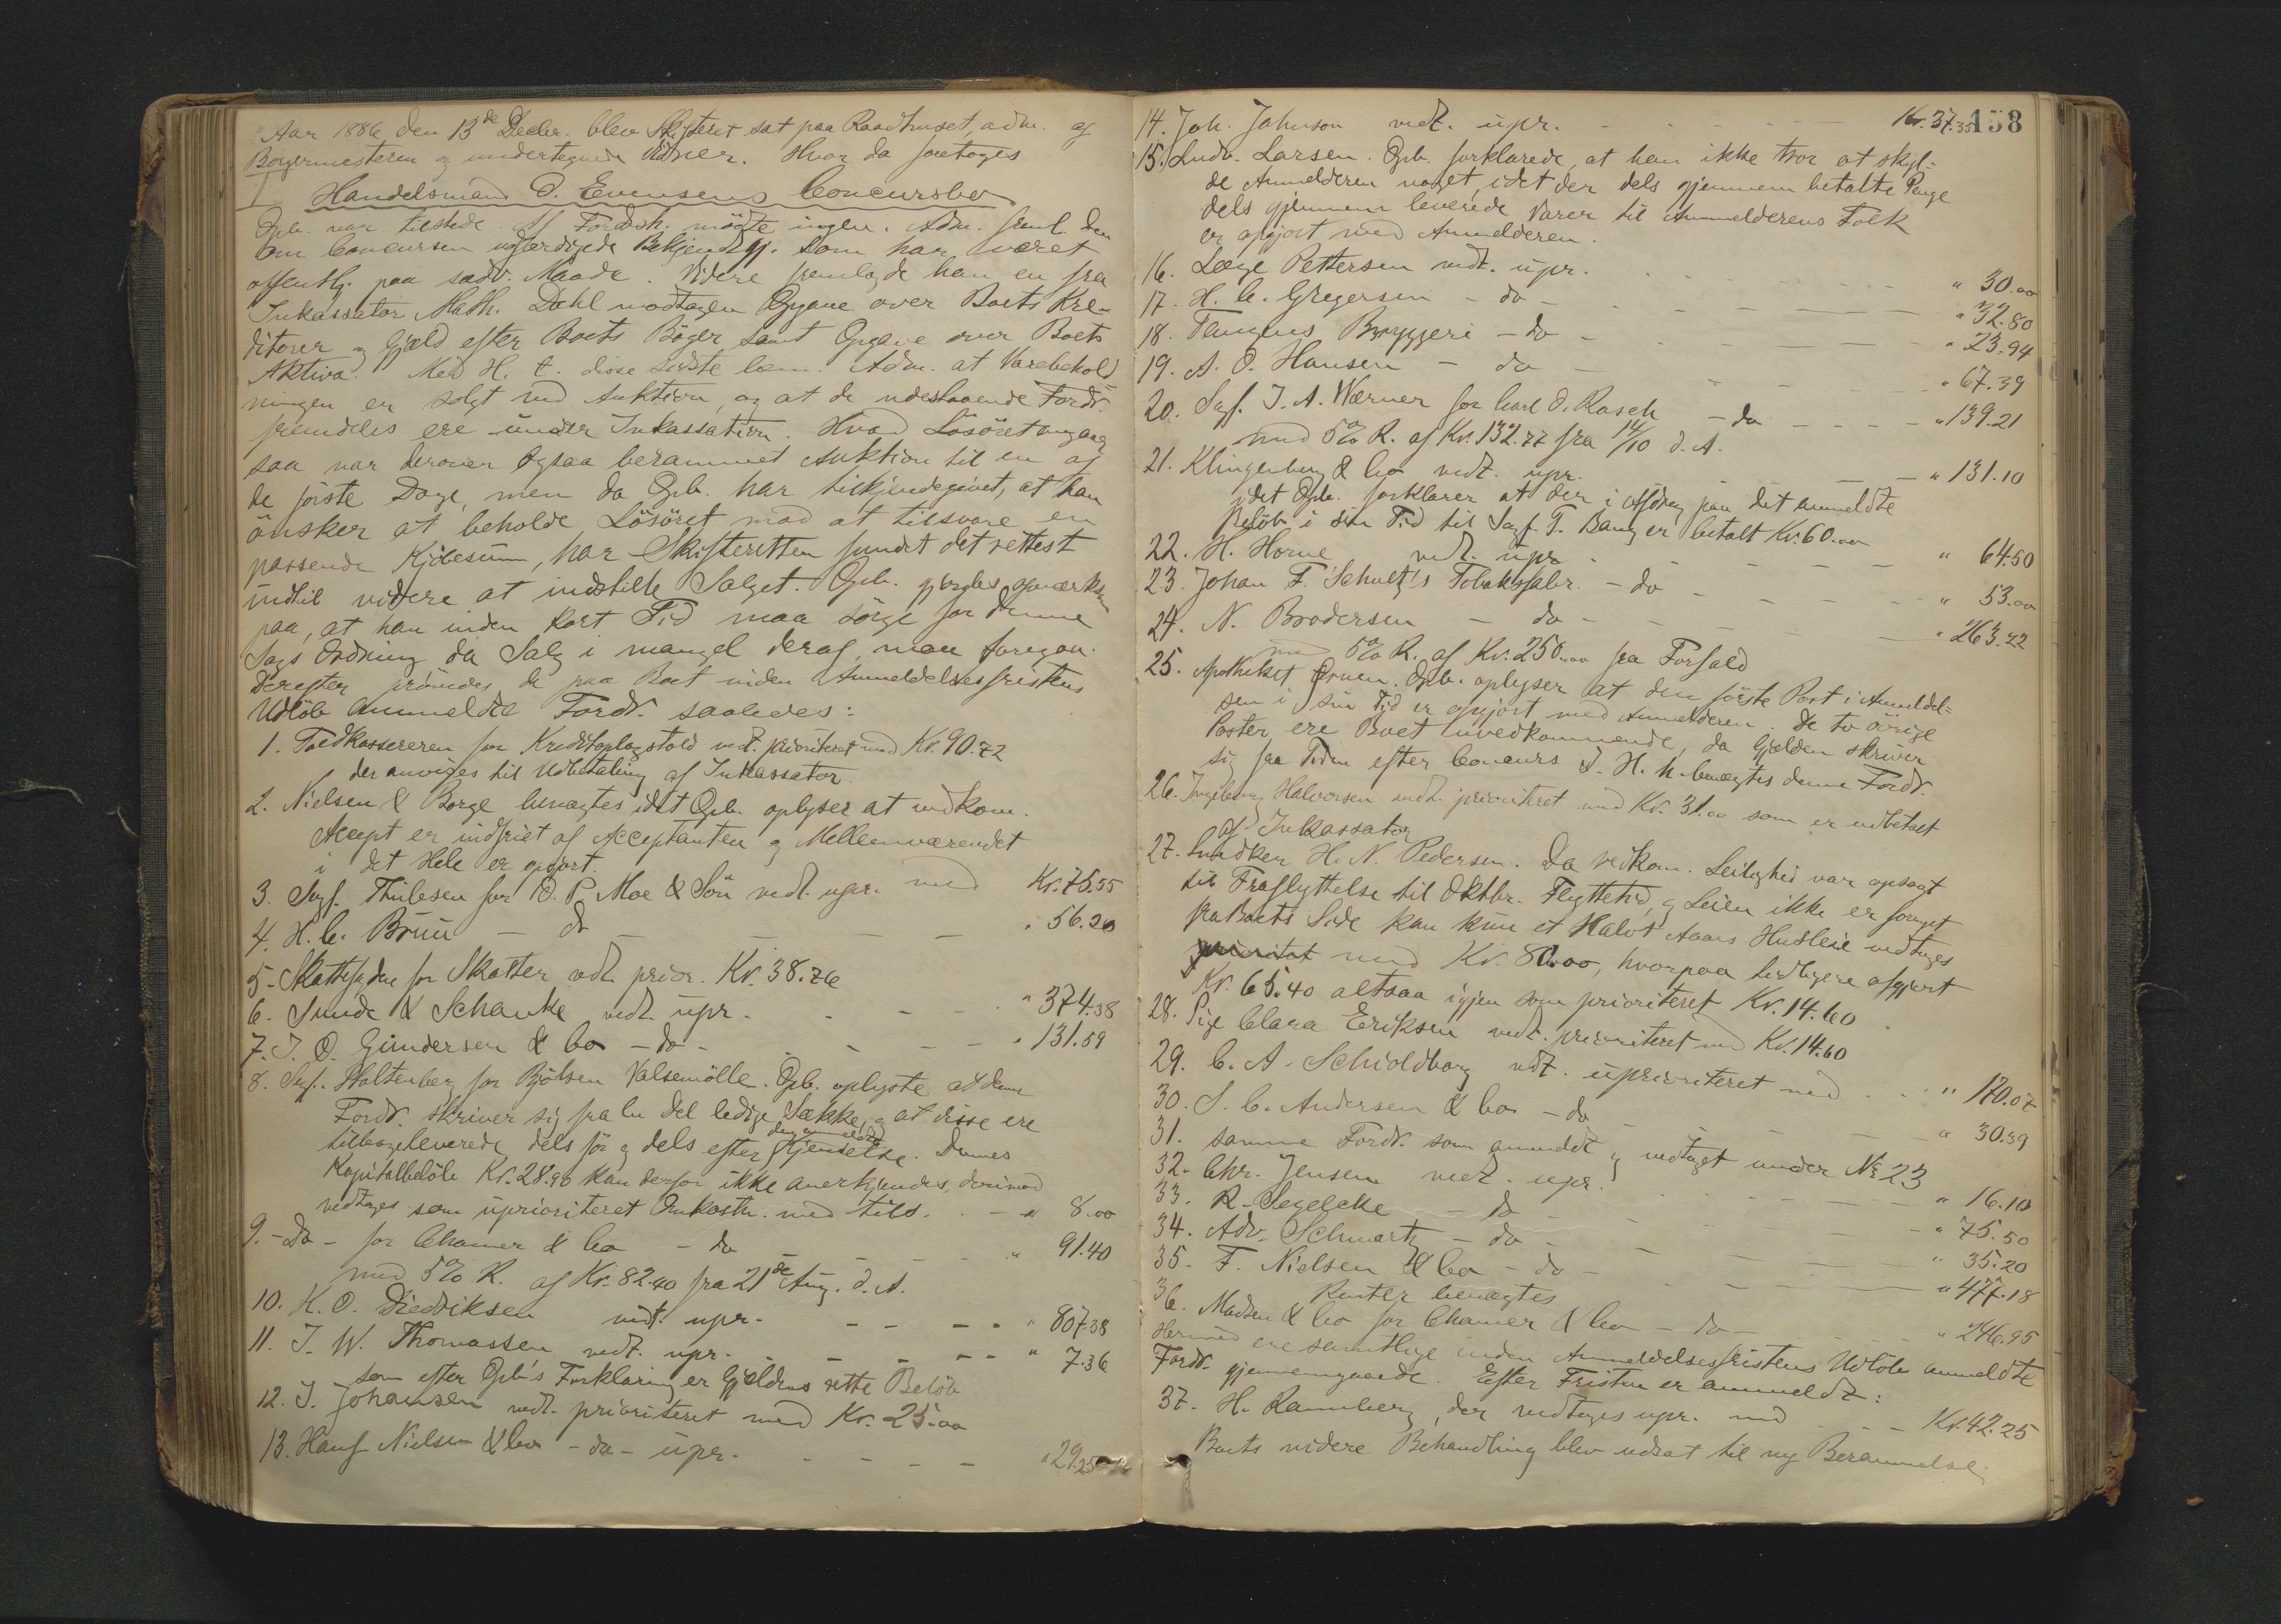 Aar 1886 den 13de Decbr. blev Skifteret sat paa Raadhuset, adm. af
Borgermesteren og undertegnede Vidner. Hvor da foretoges
1 Handelsmand O. Evensens Concursbo
Opb. var tilstede. Af Fordsh. mödte ingen. Adm. freml. den
om Concursen udfærdigede Bekjendtgj. som har været
offentlg. paa sædv. Maade. Videre fremlagde han en fra
Inkassator Math. Dahl modtagen Opgave over Boets Kre-
ditorer og Gjæld efter Boets Böger, samt Opgave over Boets
Aktiva. Med H. t. disse sidste bem. Adm. at Varebehold
ningen er solgt ved Auktion, og at de udestaaende Fordr.
fremdeles ere under Inkassation. Hvad Lösöret angaar
saa var derover ogsaa berammet Auktion til en af
de förste Dage, men da Opb. har tilkjendegivet, at han
önsker at beholde Lösöret mod at tilsvare en
passende Kjöbesum, har Skifteretten fundet det rettest
indtil videre at indstille Salget. Opb. gjordes opmærksom
paa, at han inden kort Tid maa sörge for denne
Sags Ordning da Salg i mangel deraf maa foregaa.
Derefter prövedes de paa Boet inden Anmeldelsesfristens
Udlöb anmeldte Fordr. saaledes:
1. Toldkassereren for Kreditoplagstold vedt. prioriteret med Kr. 90.72
der anvises til Udbetaling af Inkassator.
2. Nielsen & Borge benægtes idet Opb. oplyser at vedkom.
Accept er indfriet af Acceptanten og Mellemværendet
i det Hele er opgjort.
3. Sagf. Thilesen for O. P. Moe & Sön vedt. upr. med Kr. 75.55
4. H. C. Bruu - do - " 56.20
5. Skattefogden for Skatter vdt. prior. Kr. 38.76
6. Sunde & Schanke vedt. upr. " 374.38
7. J. O. Gundersen & Co - do - " 131.59
8. Sagf. Holtenberg for Bjölsen Valsemölle. Opb. oplyste at denne
Fordr. skriver sig fra en Del ledige Sække, og at disse ere
tilbageleverede dels för og dels efter den anmeldte
Kapitalbelöb Kr. 28.90 kan derfor ikke anerkjendes, derimod
vedtages som uprioriteret Omkostn. med tils. " 8.00
9. - Do - for Chamer & Co - do " 91.40
med 5% R. af Kr. 82.40 fra 21de Aug. d. A.
10. K. O. Diedriksen vedt. upr. - " 807.38
11. J. W. Thomassen vedt. upr. - " 7.36
som efter Opb's Forklaring er Gjældens rette Belöb
12. J. Johansen vedt. prioriteret med Kr. 25.00
13. Hans Nielsen & Co - do - upr. - " 29.25
158
14. Joh. Johnson vedt. upr. - Kr. 37.35
15. Ludv. Larsen. Opb. forklarede, at han ikke tror at skyl-
de Anmelderen noget, idet der dels gjennem betalte Penge
dels gjennem leverede Varer til Anmelderens Folk
er opgjort med Anmelderen.
16. Læge Pettersen vedt. upr. " 30.00
17. H. C. Gregersen - do - " 32.80
18. Tangens Bryggeri - do - " 23.94
19. A. O. Hansen - do - " 67.39
20. Sagf. J. A. Wærner for Carl O. Rasch - do - " 139.21
med 5% R. af Kr. 132.77 fra 14/10 d. A.
21. Klingenberg & Co vedt. upr. - " 131.10
idet Opb. forklarer at der i Afdrag paa det anmeldte
Belöb i sin Tid til Sagf. T. Bang er betalt Kr. 60.00
22. H. Horne vedt. upr. - " 64.50
23. Johan F. Schultz's Tobaksfabr. - do - " 53.00
24. N. Brodersen - do - " 263.22
med 5% R. af Kr. 250.00 fra Forfald
25. Apotheket Örnen. Opb. oplyser at den förste Post i Anmeldel-
sen i sin Tid er opgjort med Anmelderen. De to övrige
Poster ere Boet uvedkommende, da Gjælden skriver
sig fra Tiden efter Concurs. I. H. h. benægtes denne Fordr.
26. Ingeborg Halvorsen vedt. prioriteret med Kr. 31.00 som er udbetalt
af Inkassator
27. Snedker H. N. Pedersen. Da vedkom. Leilighed var opsagt
til Fraflyttelse til Oktbr. Flyttetid, og Leien ikke er fornyet
fra Boets Side kan kun et Halvt Aars Husleie vedtages
prioritet med Kr. 80.00, hvorpaa tidligere afgjort
Kr. 65.40 altsaa igjen som prioriteret Kr. 14.60
28. Pige Clara Eriksen vedt. prioriteret med Kr. 14.60
29. C. A. Schioldborg vdt. uprioriteret med " 170.07
30. S. C. Andersen & Co - do - " 30.39
31. samme Fordr. som anmeldt og vedtaget under No 23
32. Chr. Jensen vedt. upr. " 16.10
33. R. Segelcke - do - " 75.50
34. Adv. Schwartz - do - " 35.20
35. F. Nielsen & Co - do - " 477.18
Renter benægtes
36. Madsen & Co for Chamer & Co - do - " 246.95
Hermed ere samtlige inden Anmeldelsesfristens Udlöb anmeldte
Fordr. gjennemgaaede. Efter Fristen er anmeldt:
37. H. Ramberg, der vedtages upr. med - Kr. 42.25
Boets videre Behandling blev udsat til ny Berammelse.